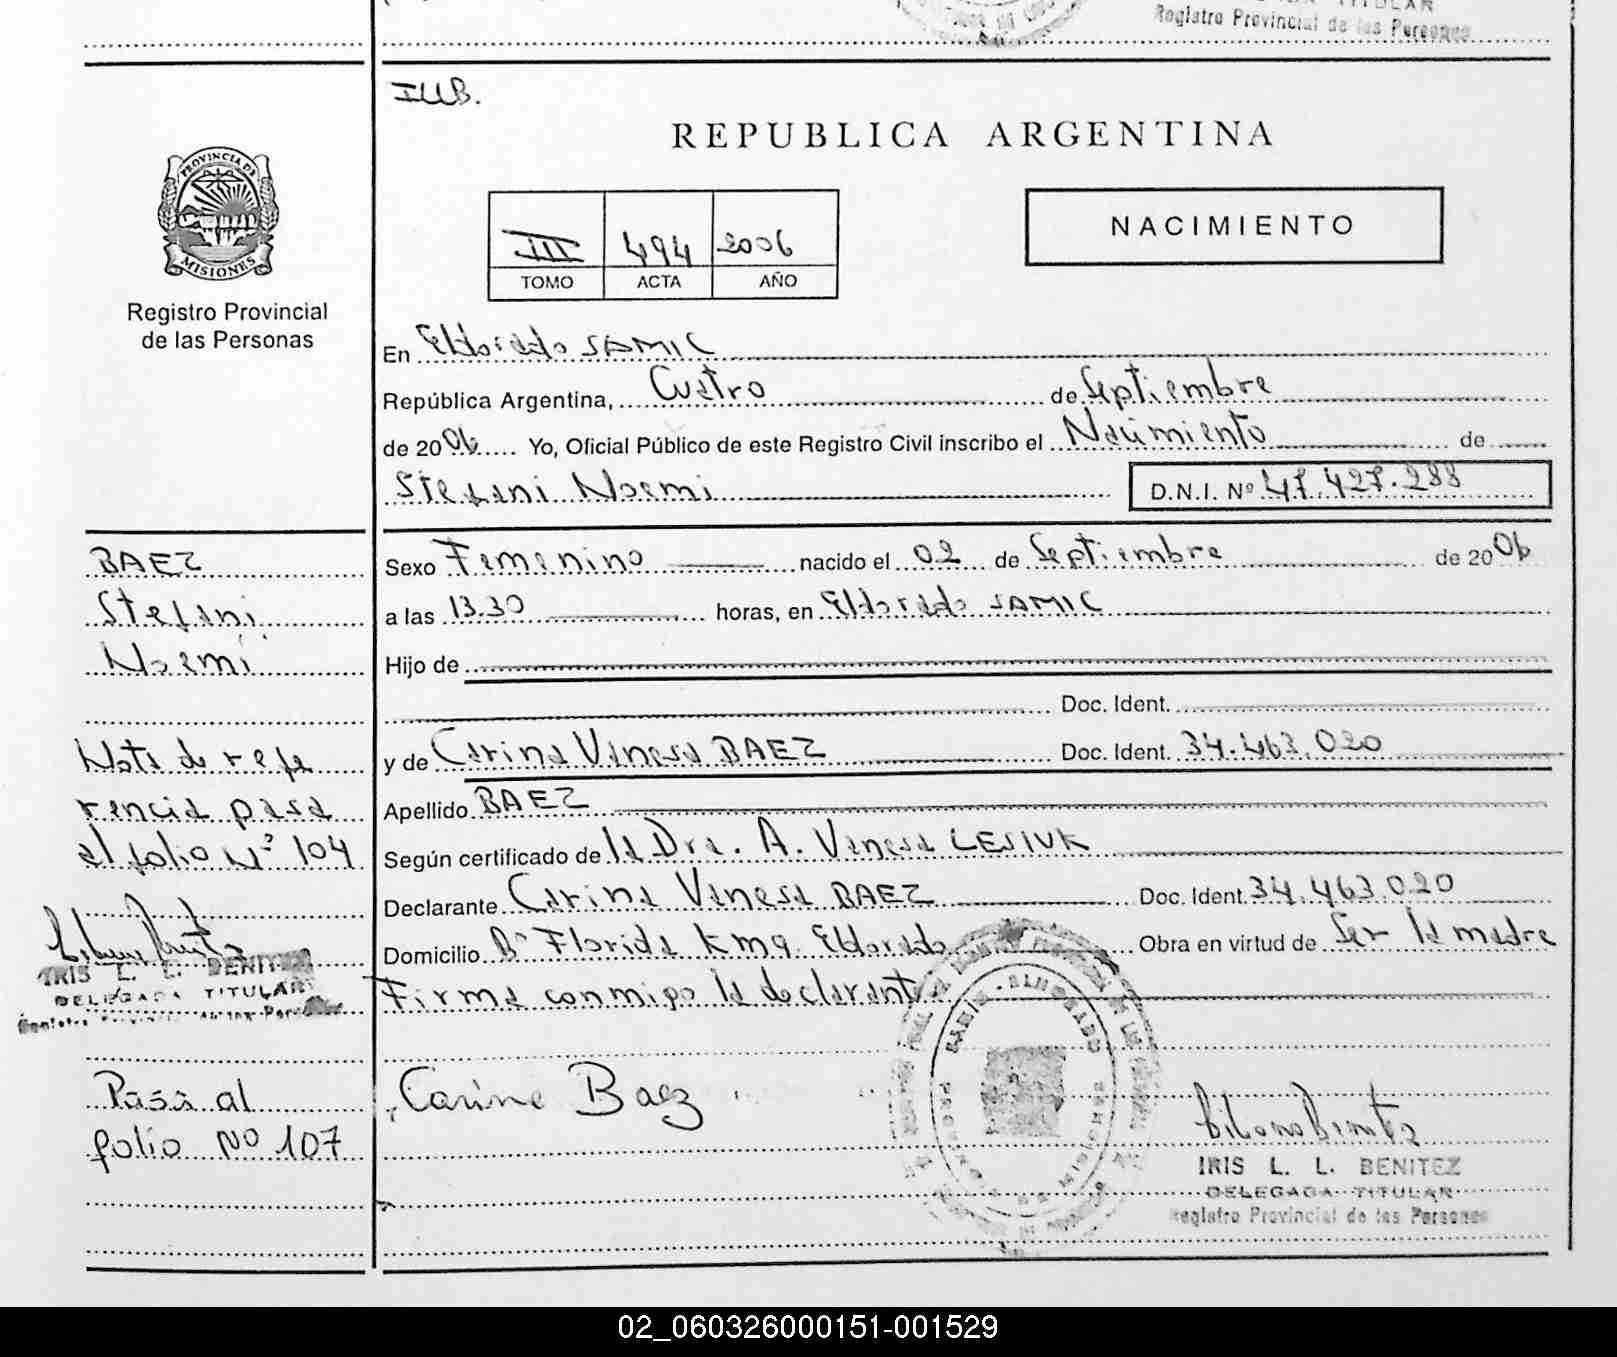 TITULAR
Registro Provincial de las Personas
IUB.
REPUBLICA ARGENTINA
PROVINCIA DE
MISIONES
Registro Provincial
de las Personas
III 494 2006
TOMO ACTA AÑO
NACIMIENTO
En Eldorado SAMIC
República Argentina, Cuatro de Septiembre
de 2006 Yo, Oficial Público de este Registro Civil inscribo el Nacimiento de
Stefani Noemi D.N.I. Nº 47.427.288
BAEZ
Stefani
Noemi
Nota de refe
rencia pasa
al folio Nº 104
IRIS L. L. BENITEZ
DELEGADA TITULAR
Pasa al
folio Nº 107
Sexo Femenino nacido el 02 de Septiembre de 2006
a las 13.30 horas, en Eldorado SAMIC
Hijo de
Doc. Ident.
y de Carina Vanesa BAEZ Doc. Ident. 34.463.020
Apellido BAEZ
Según certificado de la Dra. A. Vanesa LESIUK
Declarante Carina Vanesa BAEZ Doc. Ident. 34.463.020
Domicilio Bº Florida km 9. Eldorado Obra en virtud de Ser la madre
Firma conmigo la declarante
Carina Baez
IRIS L. L. BENITEZ
DELEGADA TITULAR
Registro Provincial de las Personas
02_060326000151-001529